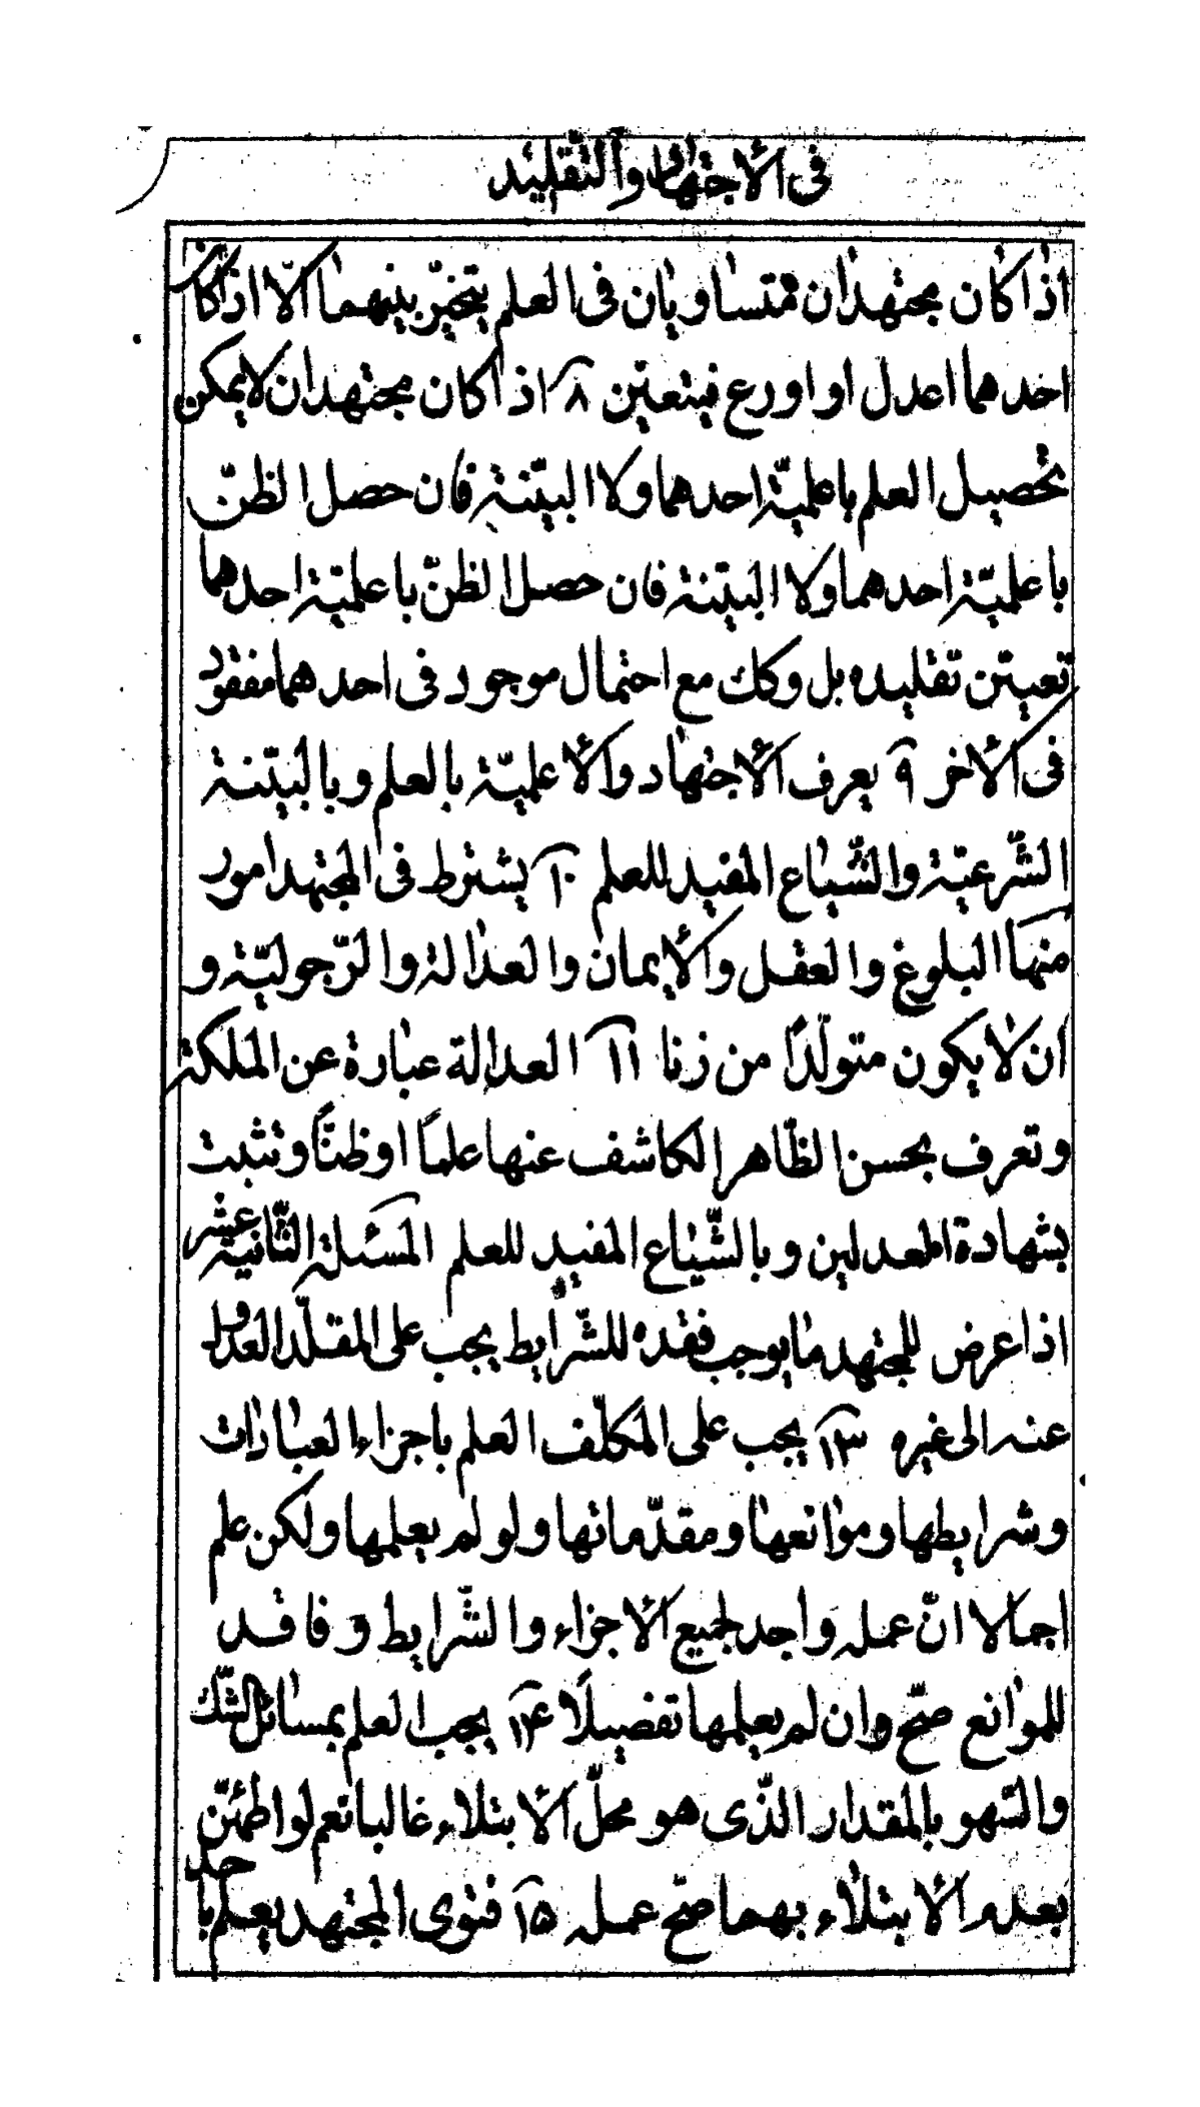 فی الاجتهاد والتقلید
اذا كان مجتهدان متساویان فی العلم یتخیّر بینهما الّا اذا كان
احدهما اعدل او اورع فیتعیّن ٨ اذا كان مجتهدان لا یمكن
تحصیل العلم باعلمیّة احدهما ولا البیّنة فان حصل الظنّ
باعلمیّة احدهما ولا البیّنة فان حصل الظنّ باعلمیّة احدهما
تعیّن تقلیده بل وكك مع احتمال موجود فی احدهما مفقود
فی الأخر ٩ یعرف الأجتهاد والأعلمیّة بالعلم وبالبیّنة
الشّرعیّة والشّیاع المفید للعلم ١٠ یشترط فی المجتهد امور
منها البلوغ والعقل والأیمان والعدالة والرّجولیّة و
ان لا یكون متولّدًا من زنا ١١ العدالة عبارة عن الملكة
وتعرف بحسن الظّاهر الكاشف عنها علمًا او ظنًّا وتثبت
بشهادة المعدلین وبالشّیاع المفید للعلم المسئلة الثّانیة عشر
اذا عرض للمجتهد ما یوجب فقده للشّرایط یجب علی المقلّد العدول
عنه الی غیره ١٣ یجب علی المكلّف العلم باجزاء العبادات
وشرایطها وموانعها ومقدّماتها ولو لم یعلمها ولكن علم
اجمالا انّ عمله واجد لجمیع الأجزاء والشّرایط و فاقد
للموانع صحّ وان لم یعلمها تفصیلًا ١۴ یجب العلم بمسائل الشّك
والسّهو بالمقدار الذّی هو محلّ الأبتلاء غالبا نعم لو اطمئنّ
بعدم الأبتلاء بهما صحّ عمله ١۵ فتوی المجتهد یعلم باحد